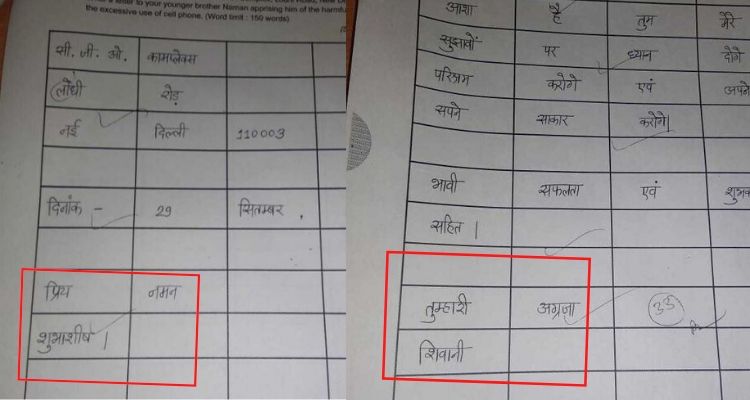 a letter to your younger brother Naman apprising him of the harmful
the excessive use of cell phone. (Word limit : 150 words)
सी. जी. ओ. काम्प्लेक्स
लोधी रोड़
नई दिल्ली 110003
दिनांक - 29 सितम्बर .
प्रिय नमन
शुभाशीष |
आशा है तुम मेरे
सुझावों पर ध्यान दोगे
परिश्रम करोगे एवं अपने
सपने साकार करोगे|
भावी सफलता एवं
सहित |
तुम्हारी अग्रजा 33
शिवानी